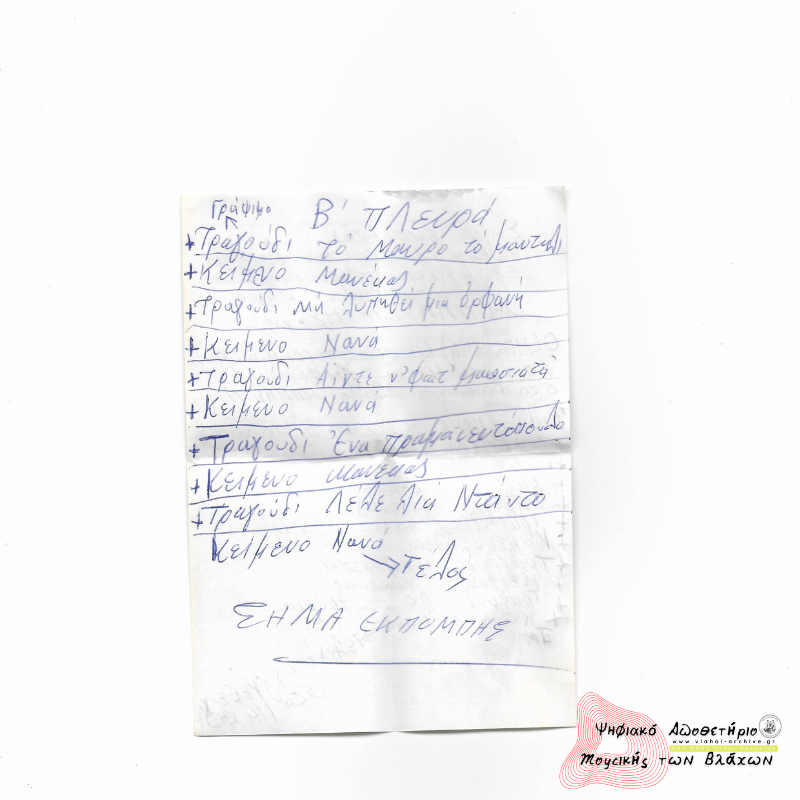 Γράψιμο
Β' Πλευρά
+Τραγούδι το μαυρο το μαντηλι
+Κείμενο Μανέκας
+Τραγούδι μη λυπηθεί μια ορφανή
+Κείμενο Νανά
+Τραγούδι Αϊντε
+Κείμενο Νανά
+Τραγούδι Ένα πραματευτόπουλο
+Κείμενο Μανέκας
+Τραγούδι Λέλε Λιά Ντάντο
Κείμενο Νανά
→Τέλος
ΣΗΜΑ ΕΚΠΟΜΠΗΣ
Ψηφιακό Αποθετήριο
www.vlahoi-archive.gr
Μουσικής των Βλάχων